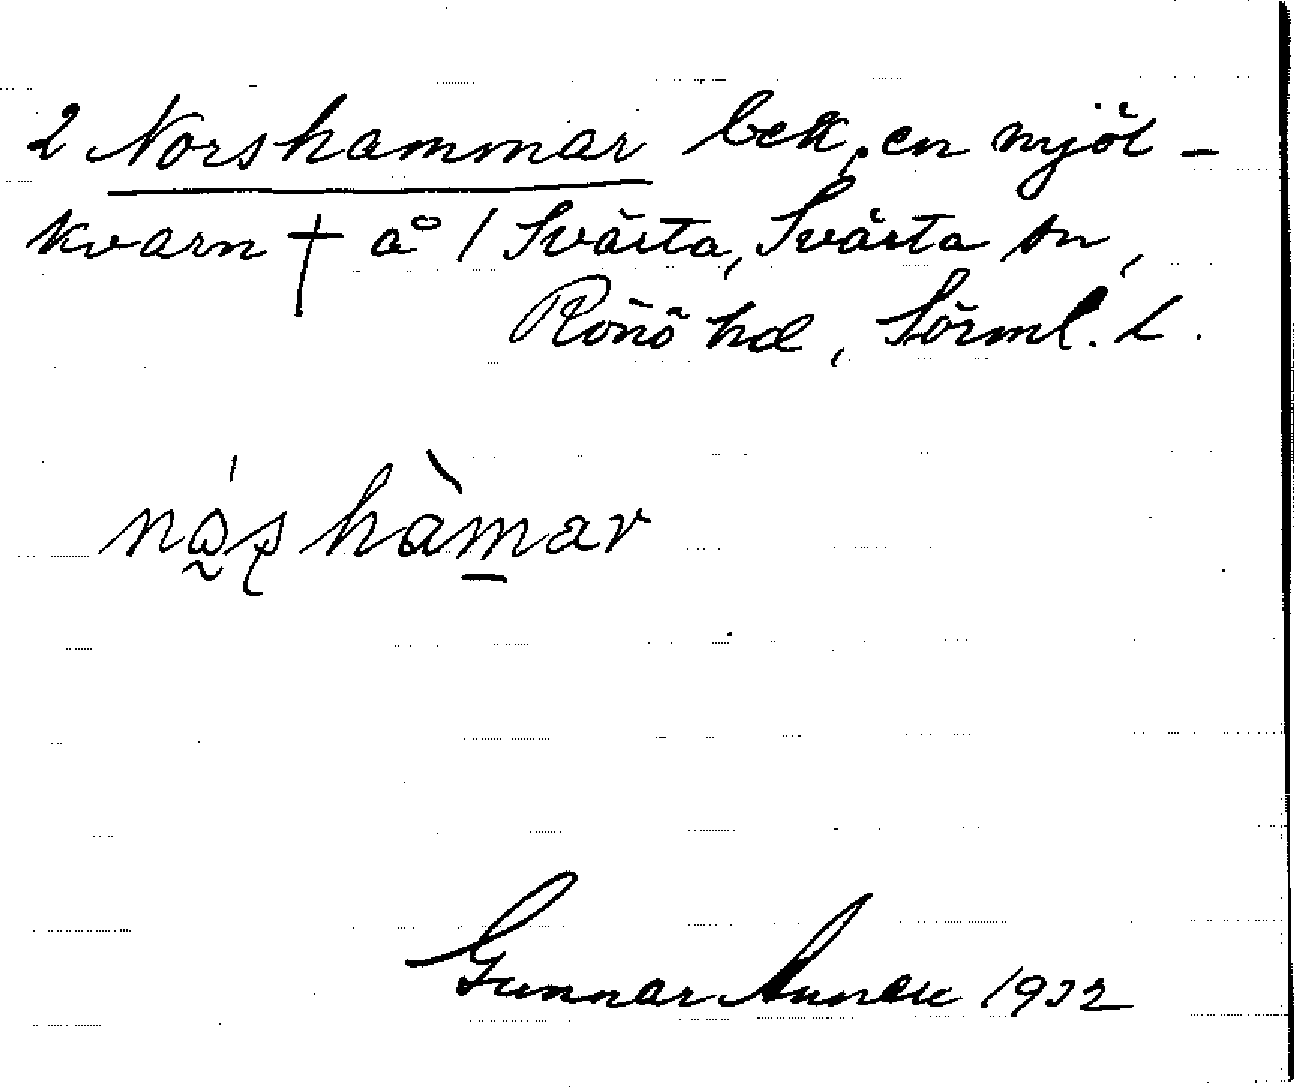 2 Norshammar bek. en mjöl-
kvarn † å / Svärta, Svärta sn,
Rönö hd, Sörml. l.
nå̰ʂhàmar
Gunnar 1932